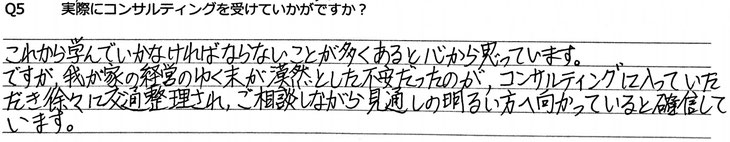 Q5 実際にコンサルティングを受けていかがですか？
これから学んでいかなければならないことが多くあると心から思っています。
ですが、我が家の経営のゆく末が漠然とした不安だったのが、コンサルティングに入っていた
だき徐々に交通整理され、ご相談しながら見通しの明るい方へ向かっていると確信して
います。